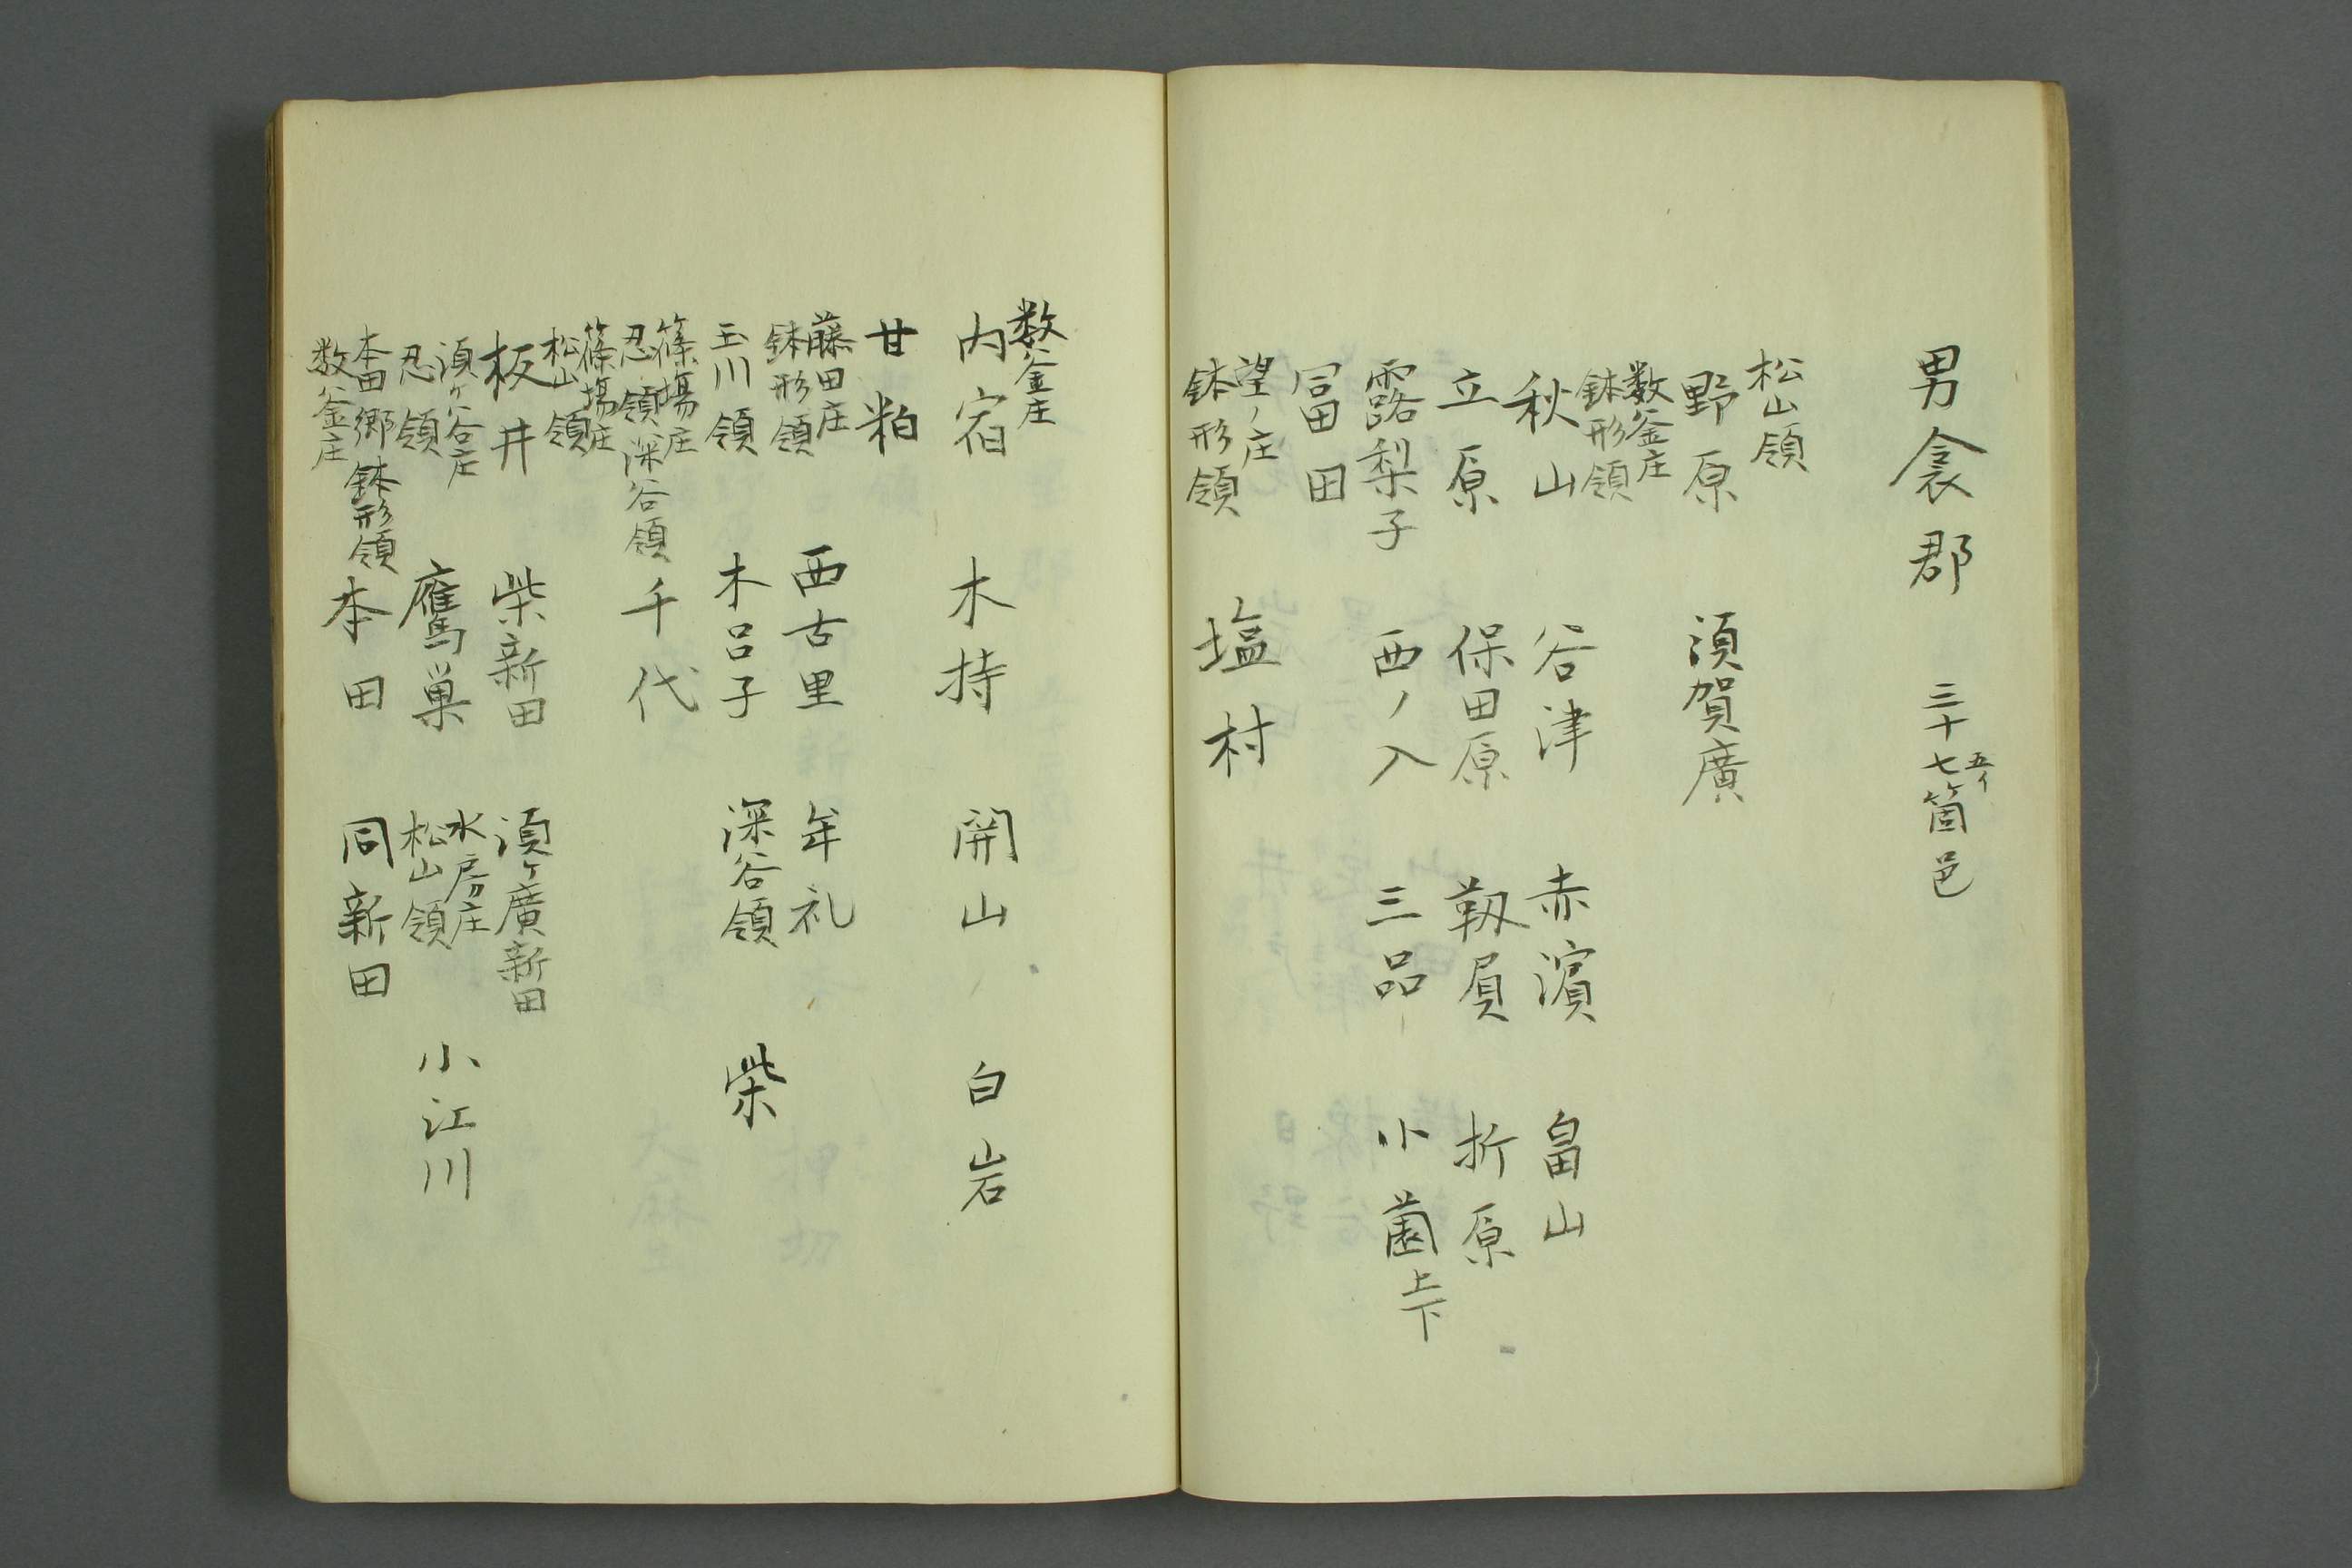 男衾郡 三十七箇邑
五イ
松山領
野原 須賀廣
数釜庄
鉢形領
秋山 谷津 赤濱 畠山
立原 保田原 靱屓 折原
露梨子 西ノ入 三品 小薗上下
冨田
望ノ庄
鉢形領 塩村
数釜庄
内宿 木持 開山 白岩
甘粕
藤田庄
鉢形領 西古里 牟礼
玉川領 木呂子 深谷領 柴
篠場庄
忍領深谷領 千代
篠場庄
松山領
板井 柴新田 須ヶ廣新田
須ヶ谷庄
忍領 鷹巣 水房庄
松山領 小江川
本田郷鉢形領
数釜庄 本田 同新田